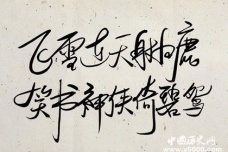 飞雪连天射白鹿
笑书神侠倚碧鸳
中国历史网